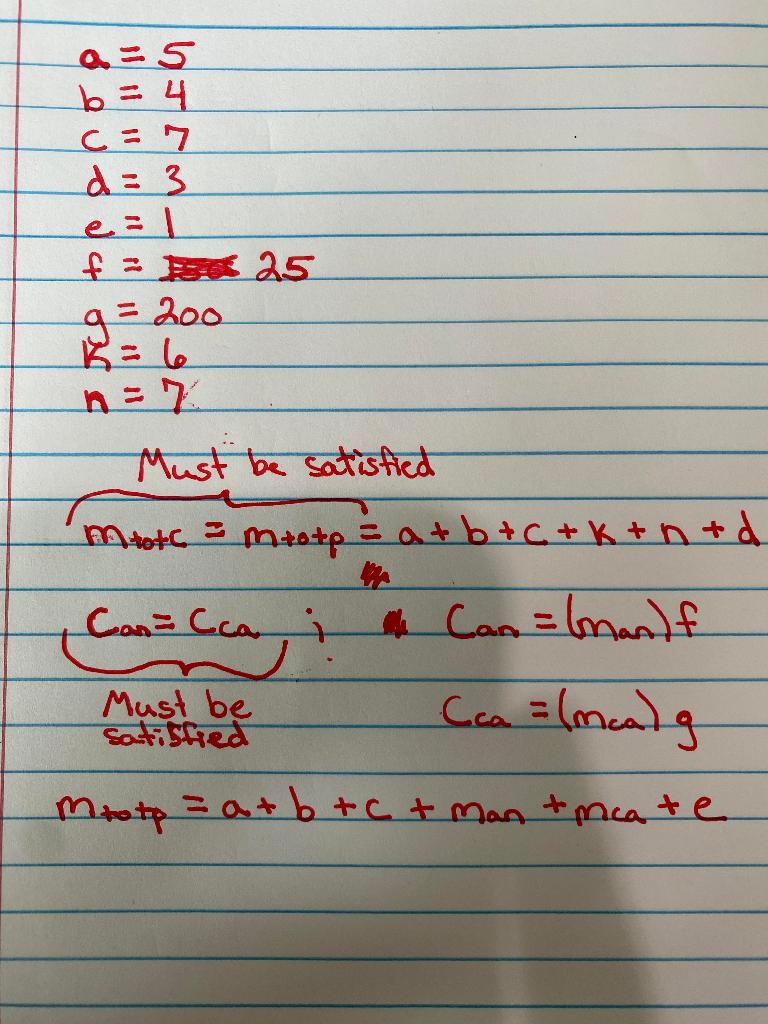 a = 5
b = 4
c = 7
d = 3
e = 1
f = 25
g = 200
K = 6
n = 7
Must be satisfied
mtotc = mtotp = a + b + c + K + n + d
Can = Cca ; Can = (man) f
Must be satisfied
Cca = (mca) g
mtotp = a + b + c + man + mca + e